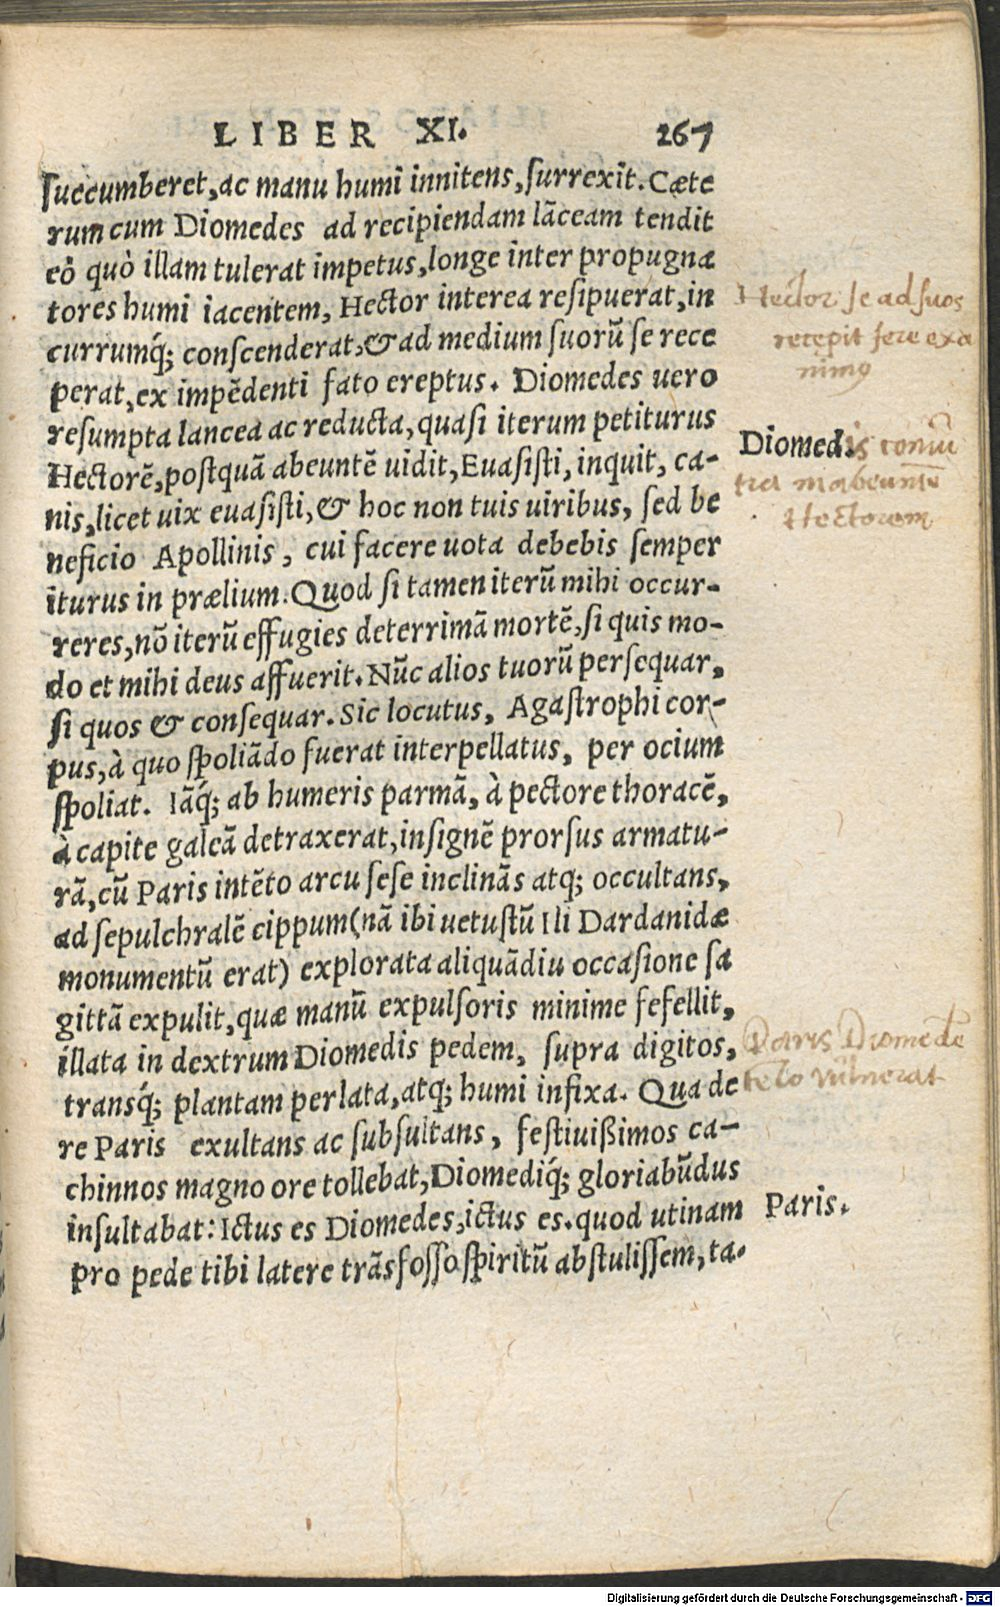 LIBER XI. 267
ſuccumberet, ac manu humi innitens, ſurrexit. Cæte
rum cum Diomedes ad recipiendam lãceam tendit
eò quò illam tulerat impetus, longe inter propugna
tores humi iacentem, Hector interea reſipuerat, in
currumq́; conſcenderat, & ad medium ſuorũ ſe rece
perat, ex impẽdenti fato ereptus. Diomedes uero
reſumpta lancea ac reducta, quaſi iterum petiturus
Hectorẽ, poſtquã abeuntẽ uidit, Euaſiſti, inquit, ca-
nis, licet uix euaſiſti, & hoc non tuis uiribus, ſed be
neficio Apollinis, cui facere uota debebis ſemper
iturus in prælium. Quod ſi tamen iterũ mihi occur-
reres, nõ iterũ effugies deterrimã mortẽ, ſi quis mo-
do et mihi deus affuerit. Nũc alios tuorũ perſequar,
ſi quos & conſequar. Sic locutus, Agaſtrophi cor-
pus, à quo ſpoliãdo fuerat interpellatus, per ocium
ſpoliat. Iãq́; ab humeris parmã, à pectore thoracẽ,
à capite galeã detraxerat, inſignẽ prorſus armatu-
rã, cũ Paris intẽto arcu ſeſe inclinãs atq; occultans,
ad ſepulchralẽ cippum (nã ibi uetuſtũ Ili Dardanidæ
monumentũ erat) explorata aliquãdiu occaſione ſa
gittã expulit, quæ manũ expulſoris minime fefellit,
illata in dextrum Diomedis pedem, ſupra digitos,
transq́; plantam perlata, atq; humi infixa. Qua de
re Paris exultans ac ſubſultans, feſtiuißimos ca-
chinnos magno ore tollebat, Diomediq́; gloriabũdus
inſultabat: Ictus es Diomedes, ictus es. quod utinam
pro pede tibi latere trãsfoſſo ſpiritũ abſtuliſſem, ta-
Hector ſe ad ſuos
recepit fere exa
nimis
Diomedis
Hectorem
Paris Diomedẽ
telo vulnerat
Paris.
Digitalisierung gefördert durch die Deutsche Forschungsgemeinschaft - DFG